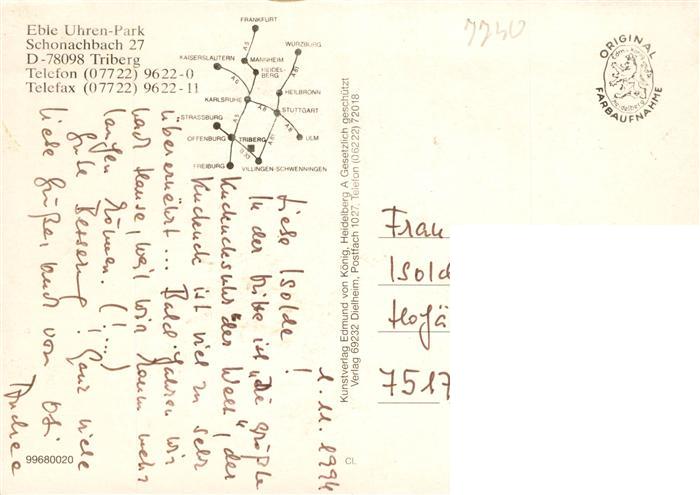 Eble Uhren-Park
Schonachbach 27
D-78098 Triberg
Telefon (07722) 9622-0
Telefax (07722) 9622-11
FRANKFURT
WÜRZBURG
KAISERSLAUTERN
MANNHEIM
HEIDEL-
BERG
A 6
A 5
A 81
HEILBRONN
KARLSRUHE
STUTTGART
A 8
A 8
STRASSBURG
OFFENBURG
TRIBERG
ULM
A 5
B 33
A 81
FREIBURG
VILLINGEN-SCHWENNINGEN
7740
ORIGINAL
FARBAUFNAHME
Edm. von König
Heidelberg
Kunstverlag Edmund von König, Heidelberg A Gesetzlich geschützt
Verlag 69232 Dielheim, Postfach 1027, Telefon (06222) 72018
1.11.1994
Liebe Isolde!
In der Mitte ist "Die größte
Kuckucksuhr der Welt", der
Kuckuck ist viel zu sehr
überernährt... Bald fahren wir
nach Hause, weil wir kaum mehr
langen können. (!...)
Gute Besserung! Ganz viele
liebe Grüße, auch von
Andrea
Frau
Isold
Hofä
7517
99680020
CL